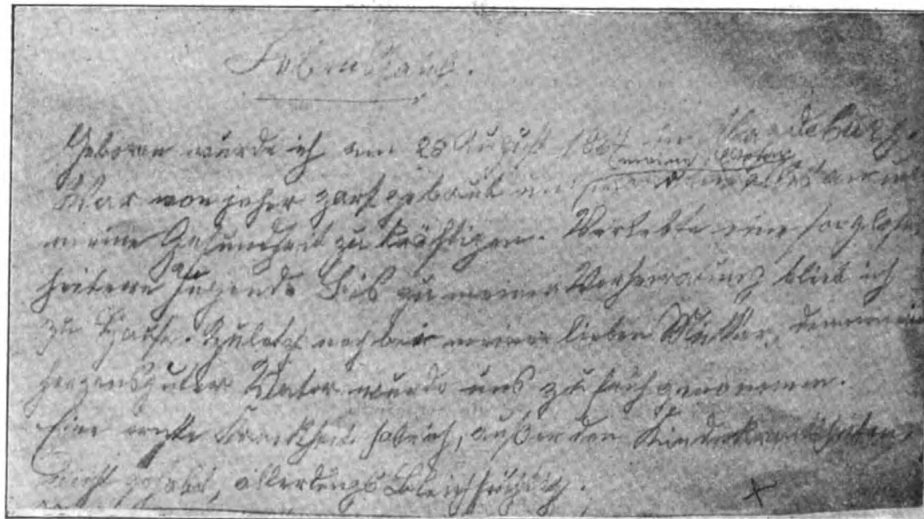 Lebenslauf.
Geboren wurde ich am 28 August 1867 in Magdeburg.
meine Eltern
War von jeher zart gebaut und alles an um
meine Gesundheit zu kräftigen. Verlebte eine sorglose
heitere Jugend. Bis zu meiner Verheiratung blieb ich
zu Hause. Zuletzt noch bei meiner lieben Mutter, denn mein
herzensguter Vater wurde uns zu früh genommen.
Eine ernste Krankheit habe ich, außer den Kinderkrankheiten,
nicht gehabt, allerdings Bleichsüchtig.